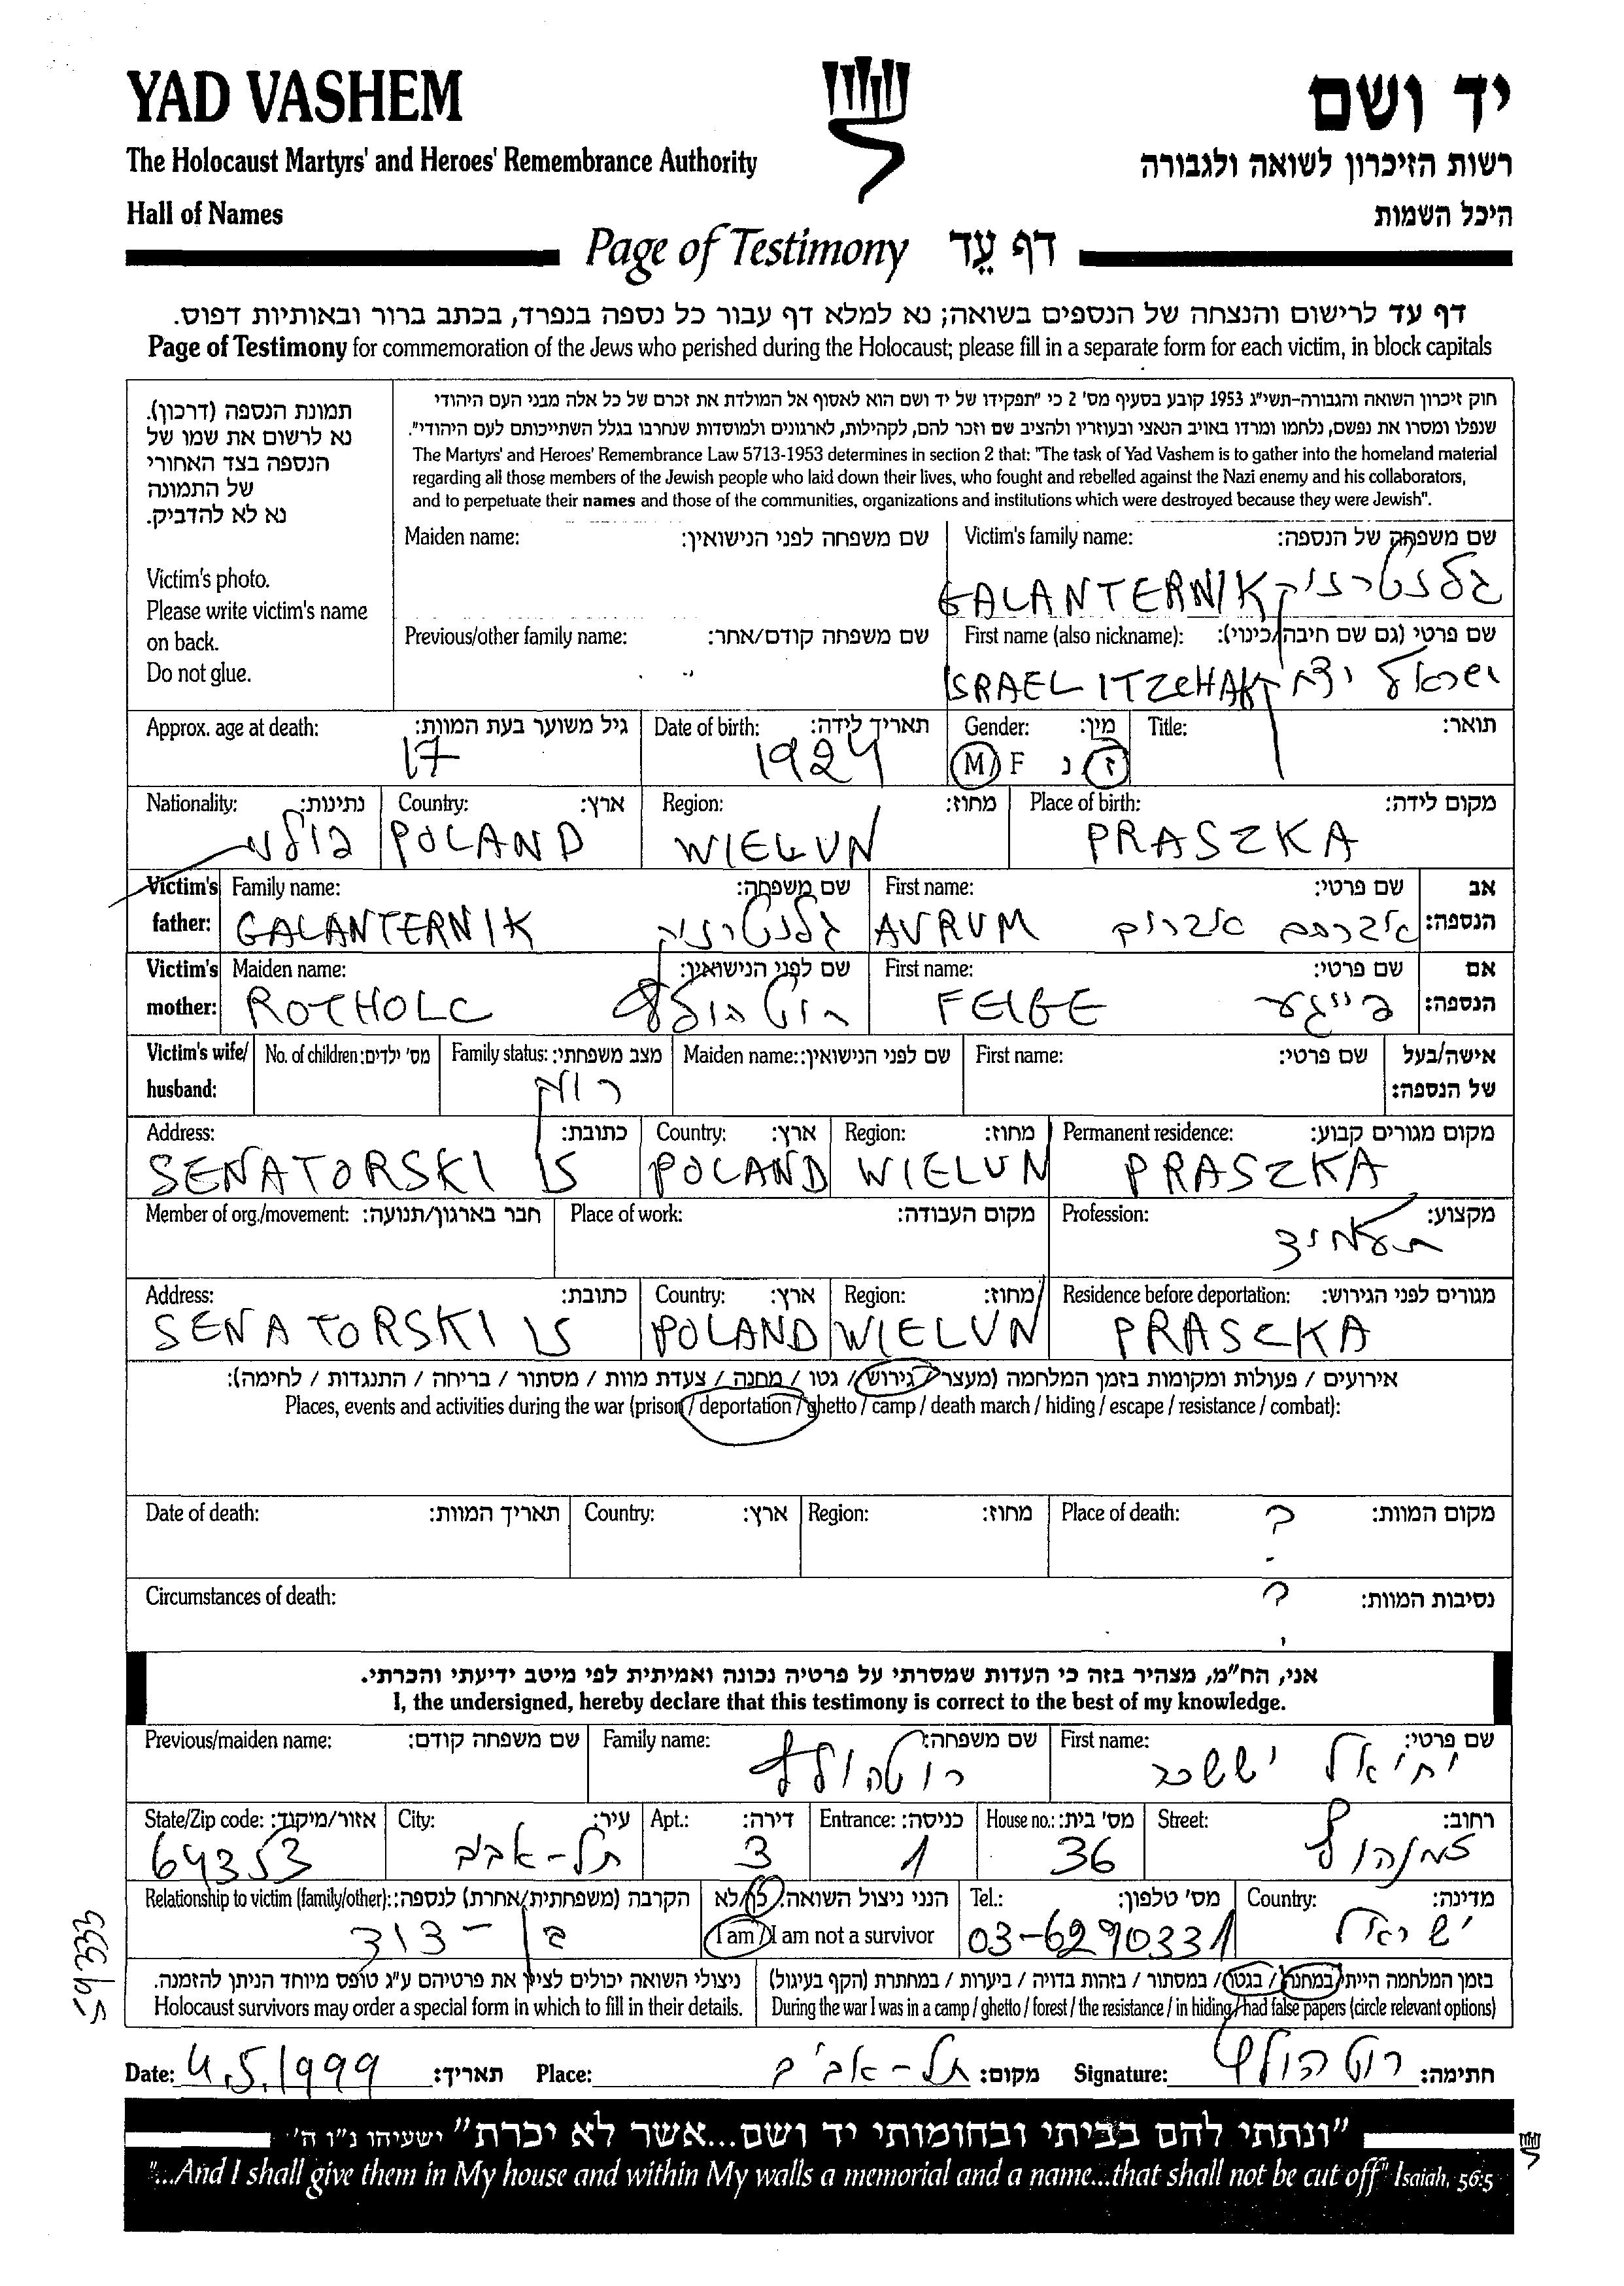 YAD VASHEM
יד ושם
The Holocaust Martyrs' and Heroes' Remembrance Authority
רשות הזיכרון לשואה ולגבורה
Hall of Names
היכל השמות
Page of Testimony דף עֵד
דף עד לרישום והנצחה של הנספים בשואה; נא למלא דף עבור כל נספה בנפרד, בכתב ברור ובאותיות דפוס.
Page of Testimony for commemoration of the Jews who perished during the Holocaust; please fill in a separate form for each victim, in block capitals
תמונת הנספה (דרכון).
נא לרשום את שמו של
הנספה בצד האחורי
של התמונה
נא לא להדביק.
Victim's photo.
Please write victim's name
on back.
Do not glue.
חוק זיכרון השואה והגבורה-תשי"ג 1953 קובע בסעיף מס' 2 כי "תפקידו של יד ושם הוא לאסוף אל המולדת את זכרם של כל אלה מבני העם היהודי
שנפלו ומסרו את נפשם, נלחמו ומרדו באויב הנאצי ובעוזריו ולהציב שם וזכר להם, לקהילות, לארגונים ולמוסדות שנחרבו בגלל השתייכותם לעם היהודי".
The Martyrs' and Heroes' Remembrance Law 5713-1953 determines in section 2 that: "The task of Yad Vashem is to gather into the homeland material
regarding all those members of the Jewish people who laid down their lives, who fought and rebelled against the Nazi enemy and his collaborators,
and to perpetuate their names and those of the communities, organizations and institutions which were destroyed because they were Jewish".
Maiden name: שם משפחה לפני הנישואין: Victim's family name: שם משפחה של הנספה:
GALANTERNIK גלנטרניק
Previous/other family name: שם משפחה קודם/אחר: First name (also nickname): שם פרטי (גם שם חיבה/כינוי):
ISRAEL ITZCHAK ישראל יצחק
Approx. age at death: גיל משוער בעת המוות: Date of birth: תאריך לידה: Gender: מין: Title: תואר:
17 1924 M F ז נ
Nationality: נתינות: Country: ארץ: Region: מחוז: Place of birth: מקום לידה:
פולני POLAND WIELUN PRASZKA
Victim's father: Family name: שם משפחה: First name: שם פרטי: אב הנספה:
GALANTERNIK גלנטרניק AVRUM אברהם אברום
Victim's mother: Maiden name: שם לפני הנישואין: First name: שם פרטי: אם הנספה:
ROTHOLC רוטהולץ FEIGE פייגע
Victim's wife/ husband: No. of children: מס' ילדים: Family status: מצב משפחתי: Maiden name: שם לפני הנישואין: First name: שם פרטי: אישה/בעל של הנספה:
רווק
Address: כתובת: Country: ארץ: Region: מחוז: Permanent residence: מקום מגורים קבוע:
SENATORSKI 15 POLAND WIELUN PRASZKA
Member of org./movement: חבר בארגון/תנועה: Place of work: מקום העבודה: Profession: מקצוע:
תלמיד
Address: כתובת: Country: ארץ: Region: מחוז: Residence before deportation: מגורים לפני הגירוש:
SENATORSKI 15 POLAND WIELUN PRASZKA
אירועים / פעולות ומקומות בזמן המלחמה (מעצר / גירוש / גטו / מחנה / צעדת מוות / מסתור / בריחה / התנגדות / לחימה):
Places, events and activities during the war (prison / deportation / ghetto / camp / death march / hiding / escape / resistance / combat):
Date of death: תאריך המוות: Country: ארץ: Region: מחוז: Place of death: ? מקום המוות:
Circumstances of death: ? נסיבות המוות:
אני, הח"מ, מצהיר בזה כי העדות שמסרתי על פרטיה נכונה ואמיתית לפי מיטב ידיעתי והכרתי.
I, the undersigned, hereby declare that this testimony is correct to the best of my knowledge.
Previous/maiden name: שם משפחה קודם: Family name: שם משפחה: First name: שם פרטי:
רוטהולץ יחיאל יששכר
State/Zip code: אזור/מיקוד: City: עיר: Apt.: דירה: Entrance: כניסה: House no.: מס' בית: Street: רחוב:
64353 תל-אביב 3 1 36
Relationship to victim (family/other): הקרבה (משפחתית/אחרת) לנספה: הנני ניצול השואה: כן/לא Tel.: מס' טלפון: Country: מדינה:
בן-דוד I am / I am not a survivor 03-6290331 ישראל
ניצולי השואה יכולים לציין את פרטיהם ע"ג טופס מיוחד הניתן להזמנה.
Holocaust survivors may order a special form in which to fill in their details.
בזמן המלחמה הייתי במחנה / בגטו / במסתור / בזהות בדויה / ביערות / במחתרת (הקף בעיגול)
During the war I was in a camp / ghetto / forest / the resistance / in hiding / had false papers (circle relevant options)
59333
Date: 4.5.1999 תאריך: Place: תל-אביב מקום: Signature: רוטהולץ חתימה:
"ונתתי להם בביתי ובחומותי יד ושם...אשר לא יכרת" ישעיהו נ"ו ה'
"...And I shall give them in My house and within My walls a memorial and a name...that shall not be cut off" Isaiah, 56:5